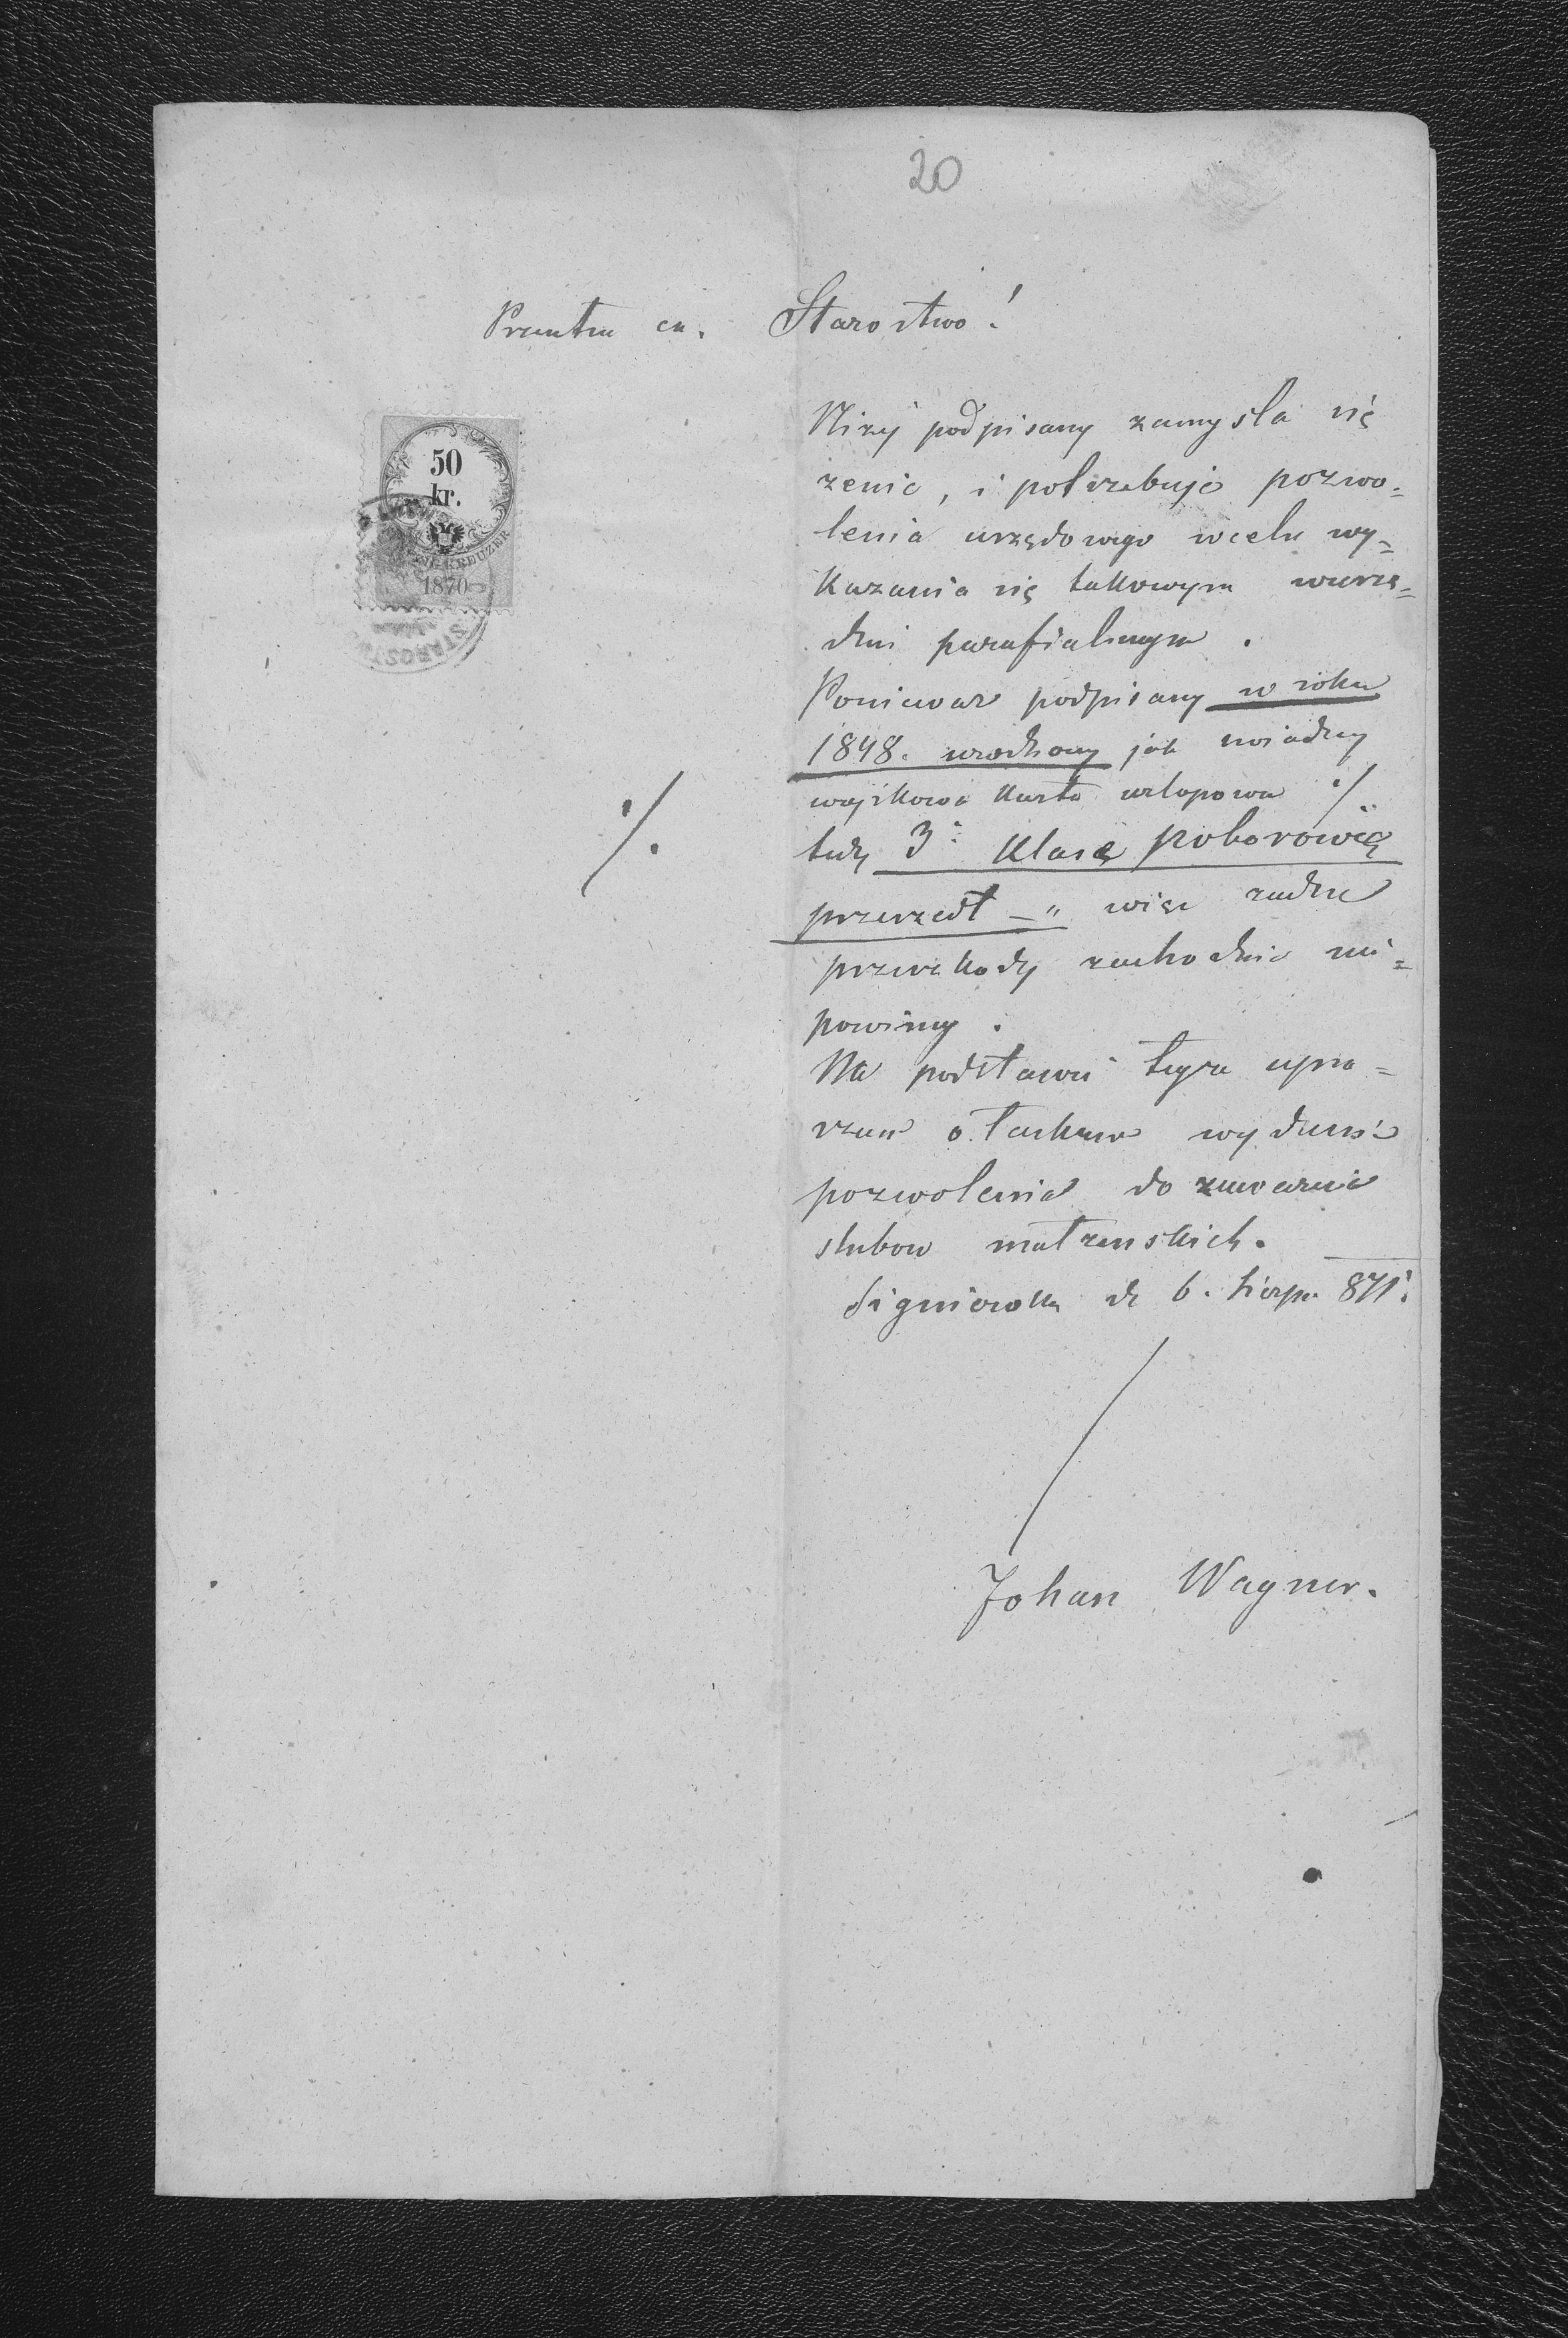 20
Prześw. ck. Starostwo!
50
kr.
KREUZER
1870
STAROST
Niżej podpisany zamyśla się
żenic, i potrzebuje pozwo=
lenia urzędowego wcelu wy=
kazania się takowym wurzę=
dzie parafialnym .
Poniewar podpisany w roku
1848. urodzony jak swiadczy
wojskowa karta urlopowa ./.
./.
tudz 3. klasę poborowię
przeszedł — " więc zadne
przeszkody zachodzic nie=
powinny .
Na podstawie tego upra=
szam o łaskawe wydanie
pozwolenia do zawarcia
slubow małzenskich.
Signiowka d 6. Sierp. 871.
Johan Wagner.